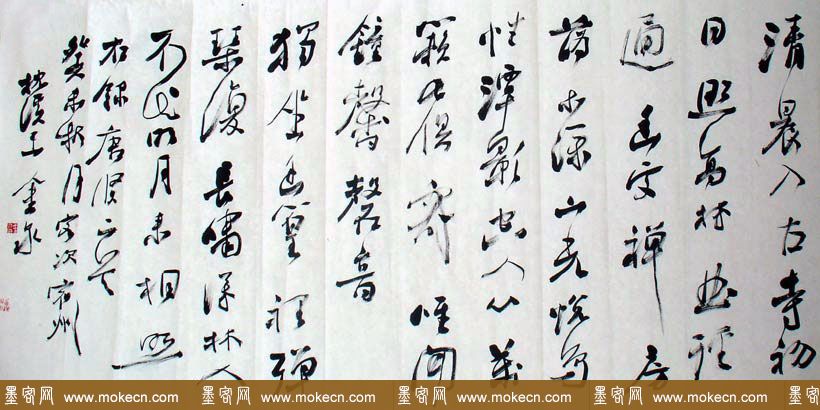 清晨入古寺初
日照高林曲径
通幽处禅房
花木深山光悦鸟
性潭影空人心萬
籁此俱寂唯闻
鐘馨磬音
獨坐幽篁裡弹
琴復長嘯深林人
不知明月来相照
右録唐賢二首
癸未秋月客次宿州
王金泉
墨客网 www.mokecn.com 墨客网 www.mokecn.com 墨客网 www.mokecn.com 墨客网 www.mokecn.com